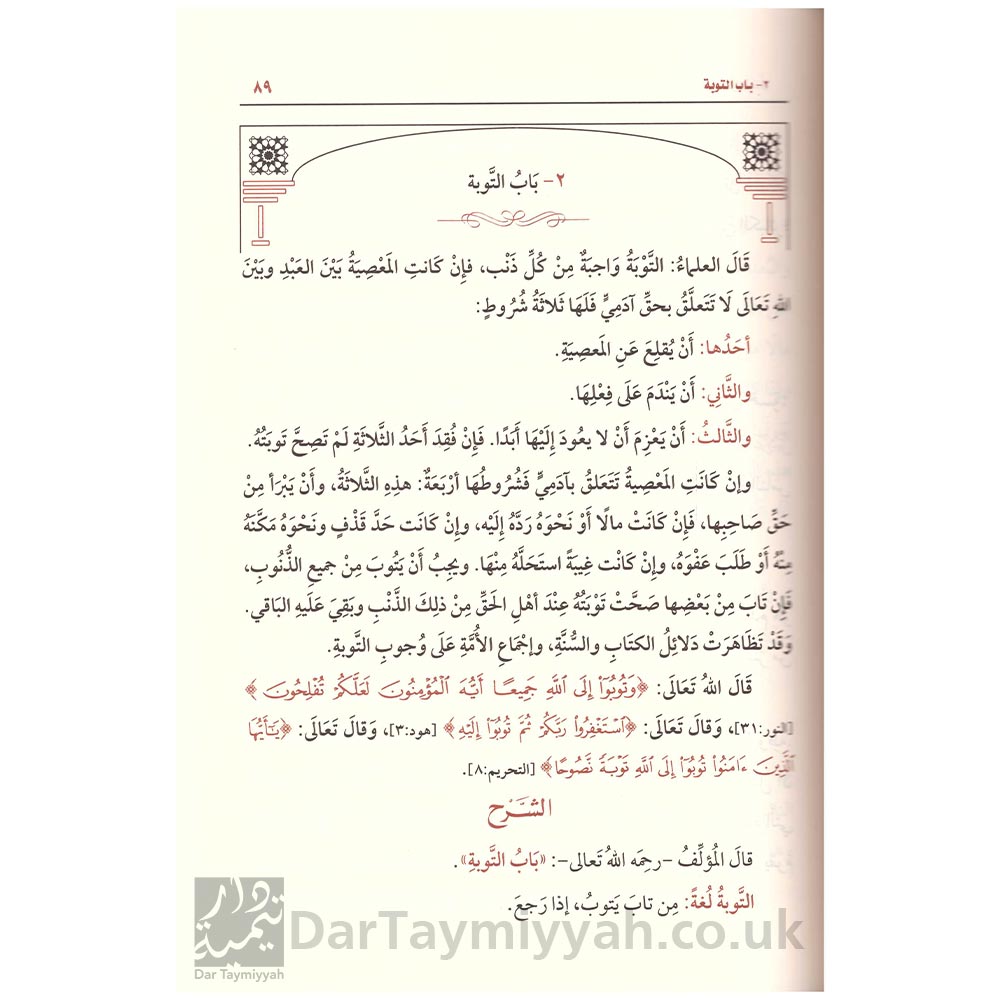 ٢- باب التوبة
٨٩
٢- بَابُ التَّوبة
قَالَ العلماءُ: التَّوْبَةُ وَاجبَةٌ مِنْ كُلِّ ذَنْب، فإنْ كَانتِ المَعْصِيَةُ بَيْنَ العَبْدِ وبَيْنَ
اللهِ تَعَالَى لَا تَتَعلَّقُ بحقِّ آدَمِيٍّ فَلَهَا ثَلاثَةُ شُرُوطٍ:
أحَدُها: أَنْ يُقلِعَ عَنِ المَعصِيَةِ.
والثَّانِي: أَنْ يَنْدَمَ عَلَى فِعْلِهَا.
والثَّالثُ: أَنْ يَعْزِمَ أَنْ لا يعُودَ إِلَيْهَا أَبَدًا. فَإِنْ فُقِدَ أَحَدُ الثَّلاثَةِ لَمْ تَصِحَّ تَوبَتُهُ.
وإنْ كَانَتِ المَعْصِيةُ تَتَعَلقُ بآدَمِيٍّ فَشُرُوطُهَا أرْبَعَةٌ: هذِهِ الثَّلاثَةُ، وأَنْ يَبْرَأ مِنْ
حَقِّ صَاحِبِها، فَإِنْ كَانَتْ مالًا أَوْ نَحْوَهُ رَدَّهُ إِلَيْه، وإنْ كانَت حَدَّ قَذْفٍ ونَحْوَهُ مَكَّنَهُ
مِنْهُ أَوْ طَلَبَ عَفْوَهُ، وإنْ كَانْت غِيبَةً استَحَلَّهُ مِنْهَا. ويجِبُ أَنْ يَتُوبَ مِنْ جميعِ الذُّنُوبِ،
فَإِنْ تَابَ مِنْ بَعْضِها صَحَّتْ تَوْبَتُهُ عِنْدَ أهْلِ الحَقِّ مِنْ ذلِكَ الذَّنْبِ وبَقِيَ عَلَيهِ البَاقي.
وَقَدْ تَظَاهَرَتْ دَلائِلُ الكتَابِ والسُّنَّةِ، وإجْمَاعِ الأُمَّةِ عَلَى وُجوبِ التَّوبةِ.
قَالَ اللهُ تَعَالَى: ﴿وَتُوبُوٓا۟ إِلَى ٱللَّهِ جَمِيعًا أَيُّهَ ٱلْمُؤْمِنُونَ لَعَلَّكُمْ تُفْلِحُونَ﴾
[النور:٣١]، وَقالَ تَعَالَى: ﴿ٱسْتَغْفِرُوا۟ رَبَّكُمْ ثُمَّ تُوبُوٓا۟ إِلَيْهِ﴾ [هود:٣]، وَقالَ تَعَالَى: ﴿يَـٰٓأَيُّهَا
ٱلَّذِينَ ءَامَنُوا۟ تُوبُوٓا۟ إِلَى ٱللَّهِ تَوْبَةً نَّصُوحًا﴾ [التحريم:٨].
الشَّرح
قالَ المُؤلِّفُ -رحِمَه اللهُ تَعالى-: «بَابُ التَّوبةِ».
التَّوبةُ لُغةً: مِن تابَ يَتوبُ، إذا رَجعَ.
دار تيمية
Dar Taymiyyah
DarTaymiyyah.co.uk